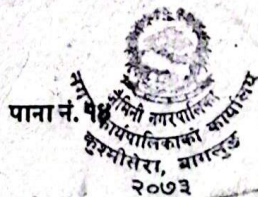 पाना नं. १४
जैमिनी नगरपालिका
नगर कार्यपालिकाको कार्यालय
कुश्मीसेरा, बागलुङ
२०७३